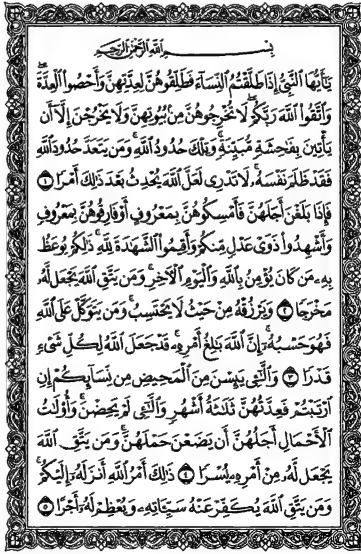 بِسْمِ اللَّهِ الرَّحْمَٰنِ الرَّحِيمِ
يَا أَيُّهَا النَّبِيُّ إِذَا طَلَّقْتُمُ النِّسَاءَ فَطَلِّقُوهُنَّ لِعِدَّتِهِنَّ وَأَحْصُوا الْعِدَّةَ
وَاتَّقُوا اللَّهَ رَبَّكُمْ لَا تُخْرِجُوهُنَّ مِنْ بُيُوتِهِنَّ وَلَا يَخْرُجْنَ إِلَّا أَنْ
يَأْتِينَ بِفَاحِشَةٍ مُبَيِّنَةٍ وَتِلْكَ حُدُودُ اللَّهِ وَمَنْ يَتَعَدَّ حُدُودَ اللَّهِ
فَقَدْ ظَلَمَ نَفْسَهُ لَا تَدْرِي لَعَلَّ اللَّهَ يُحْدِثُ بَعْدَ ذَلِكَ أَمْرًا ۝١
فَإِذَا بَلَغْنَ أَجَلَهُنَّ فَأَمْسِكُوهُنَّ بِمَعْرُوفٍ أَوْ فَارِقُوهُنَّ بِمَعْرُوفٍ
وَأَشْهِدُوا ذَوَيْ عَدْلٍ مِنْكُمْ وَأَقِيمُوا الشَّهَادَةَ لِلَّهِ ذَلِكُمْ يُوعَظُ
بِهِ مَنْ كَانَ يُؤْمِنُ بِاللَّهِ وَالْيَوْمِ الْآخِرِ وَمَنْ يَتَّقِ اللَّهَ يَجْعَلْ لَهُ
مَخْرَجًا ۝٢ وَيَرْزُقْهُ مِنْ حَيْثُ لَا يَحْتَسِبُ وَمَنْ يَتَوَكَّلْ عَلَى اللَّهِ
فَهُوَ حَسْبُهُ إِنَّ اللَّهَ بَالِغُ أَمْرِهِ قَدْ جَعَلَ اللَّهُ لِكُلِّ شَيْءٍ
قَدْرًا ۝٣ وَالَّتِي يَئِسْنَ مِنَ الْمَحِيضِ مِنْ نِسَائِكُمْ إِنِ
ارْتَبْتُمْ فَعِدَّتُهُنَّ ثَلَاثَةُ أَشْهُرٍ وَالَّتِي لَمْ يَحِضْنَ وَأُولَاتُ
الْأَحْمَالِ أَجَلُهُنَّ أَنْ يَضَعْنَ حَمْلَهُنَّ وَمَنْ يَتَّقِ اللَّهَ
يَجْعَلْ لَهُ مِنْ أَمْرِهِ يُسْرًا ۝٤ ذَلِكَ أَمْرُ اللَّهِ أَنْزَلَهُ إِلَيْكُمْ
وَمَنْ يَتَّقِ اللَّهَ يُكَفِّرْ عَنْهُ سَيِّئَاتِهِ وَيُعْظِمْ لَهُ أَجْرًا ۝٥